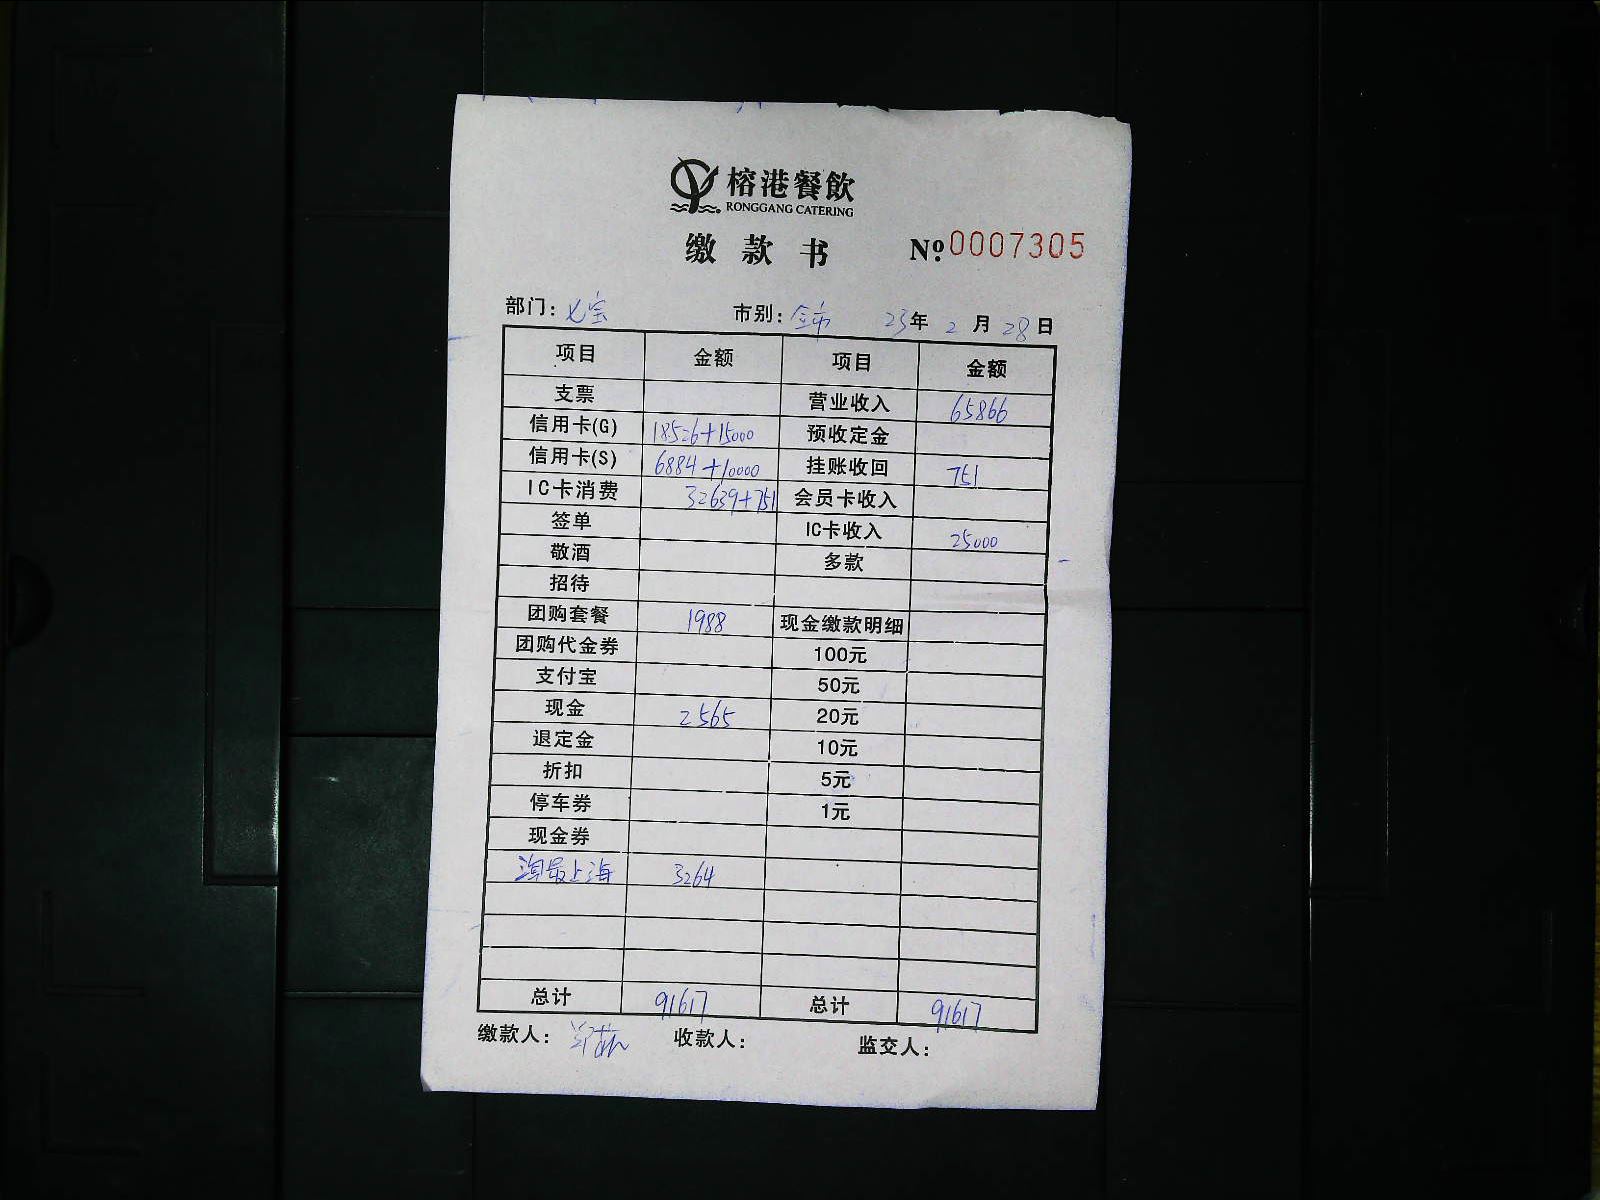 榕港餐飲
RONGGANG CATERING
缴款书 №:0007305
部门:七宝 市别:全市 23年2月28日
项目 金额 项目 金额
支票 营业收入 65866
信用卡(G) 18526+15000 预收定金
信用卡(S) 6884+10000 挂账收回 751
IC卡消费 32639+751 会员卡收入
签单 IC卡收入 25000
敬酒 多款
招待
团购套餐 1988 现金缴款明细
团购代金券 100元
支付宝 50元
现金 2565 20元
退定金 10元
折扣 5元
停车券 1元
现金券
淘最上海 3264
总计 91617 总计 91617
缴款人: 收款人: 监交人: